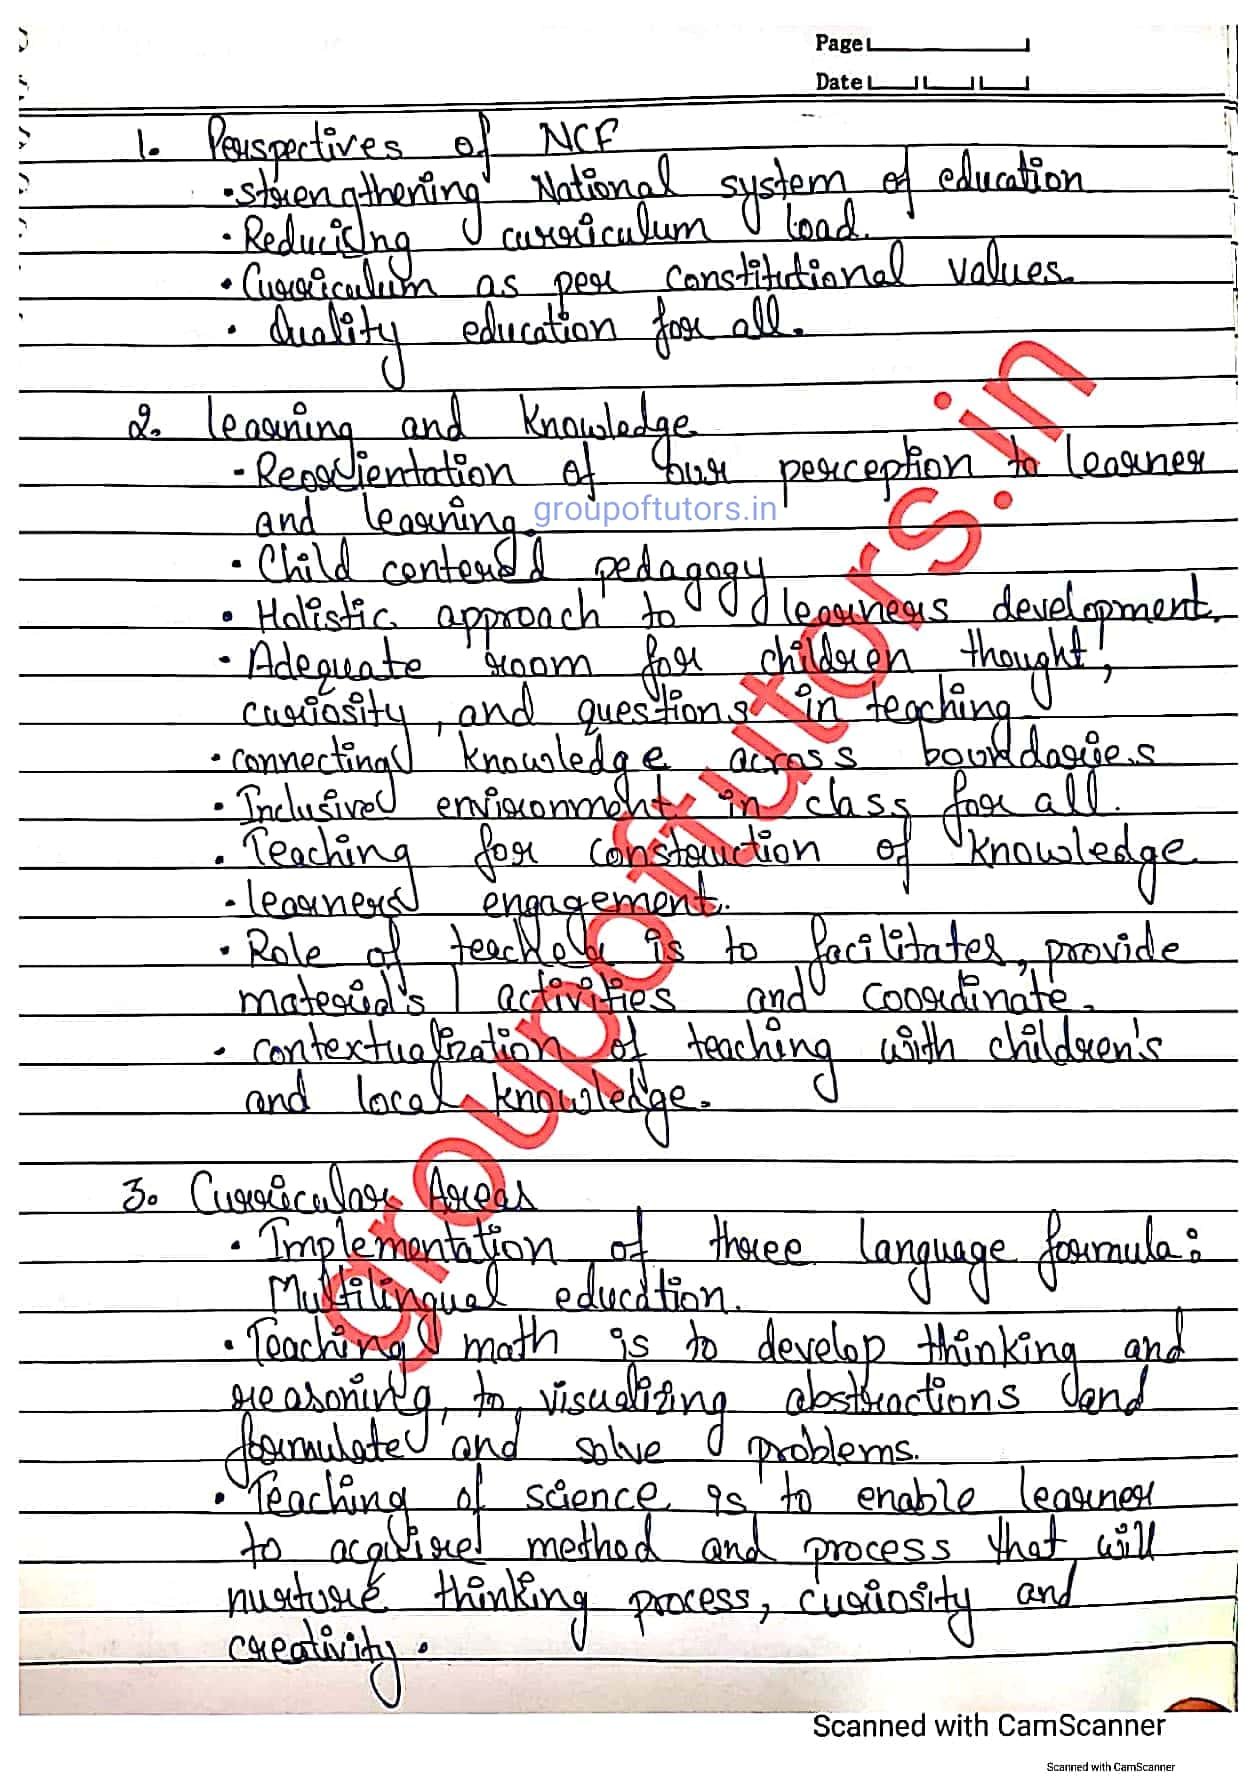 Page
Date
1. Perspectives of NCF
• Strengthening National system of education
• Reducing curriculum load.
• Curriculum as per constitutional values.
• Quality education for all.
2. Learning and Knowledge
- Reorientation of our perception to learner
and learning.
groupoftutors.in
• Child centered pedagogy
• Holistic approach to learners development.
• Adequate room for children thought,
curiosity, and questions in teaching
• connecting knowledge across boundaries
• Inclusive environment in class for all.
• Teaching for construction of knowledge
• learners engagement.
• Role of teacher is to facilitates, provide
material's, activities and coordinate.
• contextualization of teaching with children's
and local knowledge.
3. Curricular Areas
• Implementation of three language formula:
Multilingual education.
• Teaching math is to develop thinking and
reasoning, to visualizing abstractions and
formulate and solve problems.
• Teaching of science is to enable learner
to acquire method and process that will
nurture thinking process, curiosity and
creativity.
groupoftutors.in
Scanned with CamScanner
Scanned with CamScanner